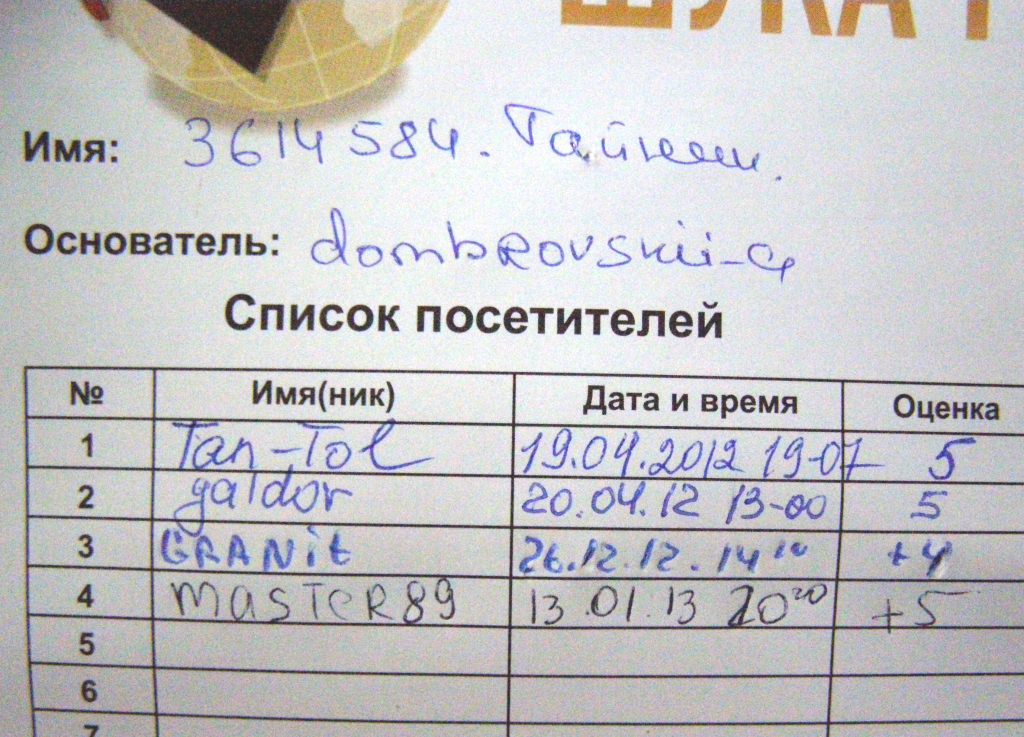 ШУКА
Имя: 3614584. Тайник.
Основатель: dombrovskii-a
Список посетителей
№ Имя(ник) Дата и время Оценка
1 Tan-Tol 19.04.2012 19-07 5
2 galdor 20.04.12 13-00 5
3 GRANit 26.12.12. 14¹⁰ +4
4 masTeR89 13.01.13 20²⁰ +5
5
6
7